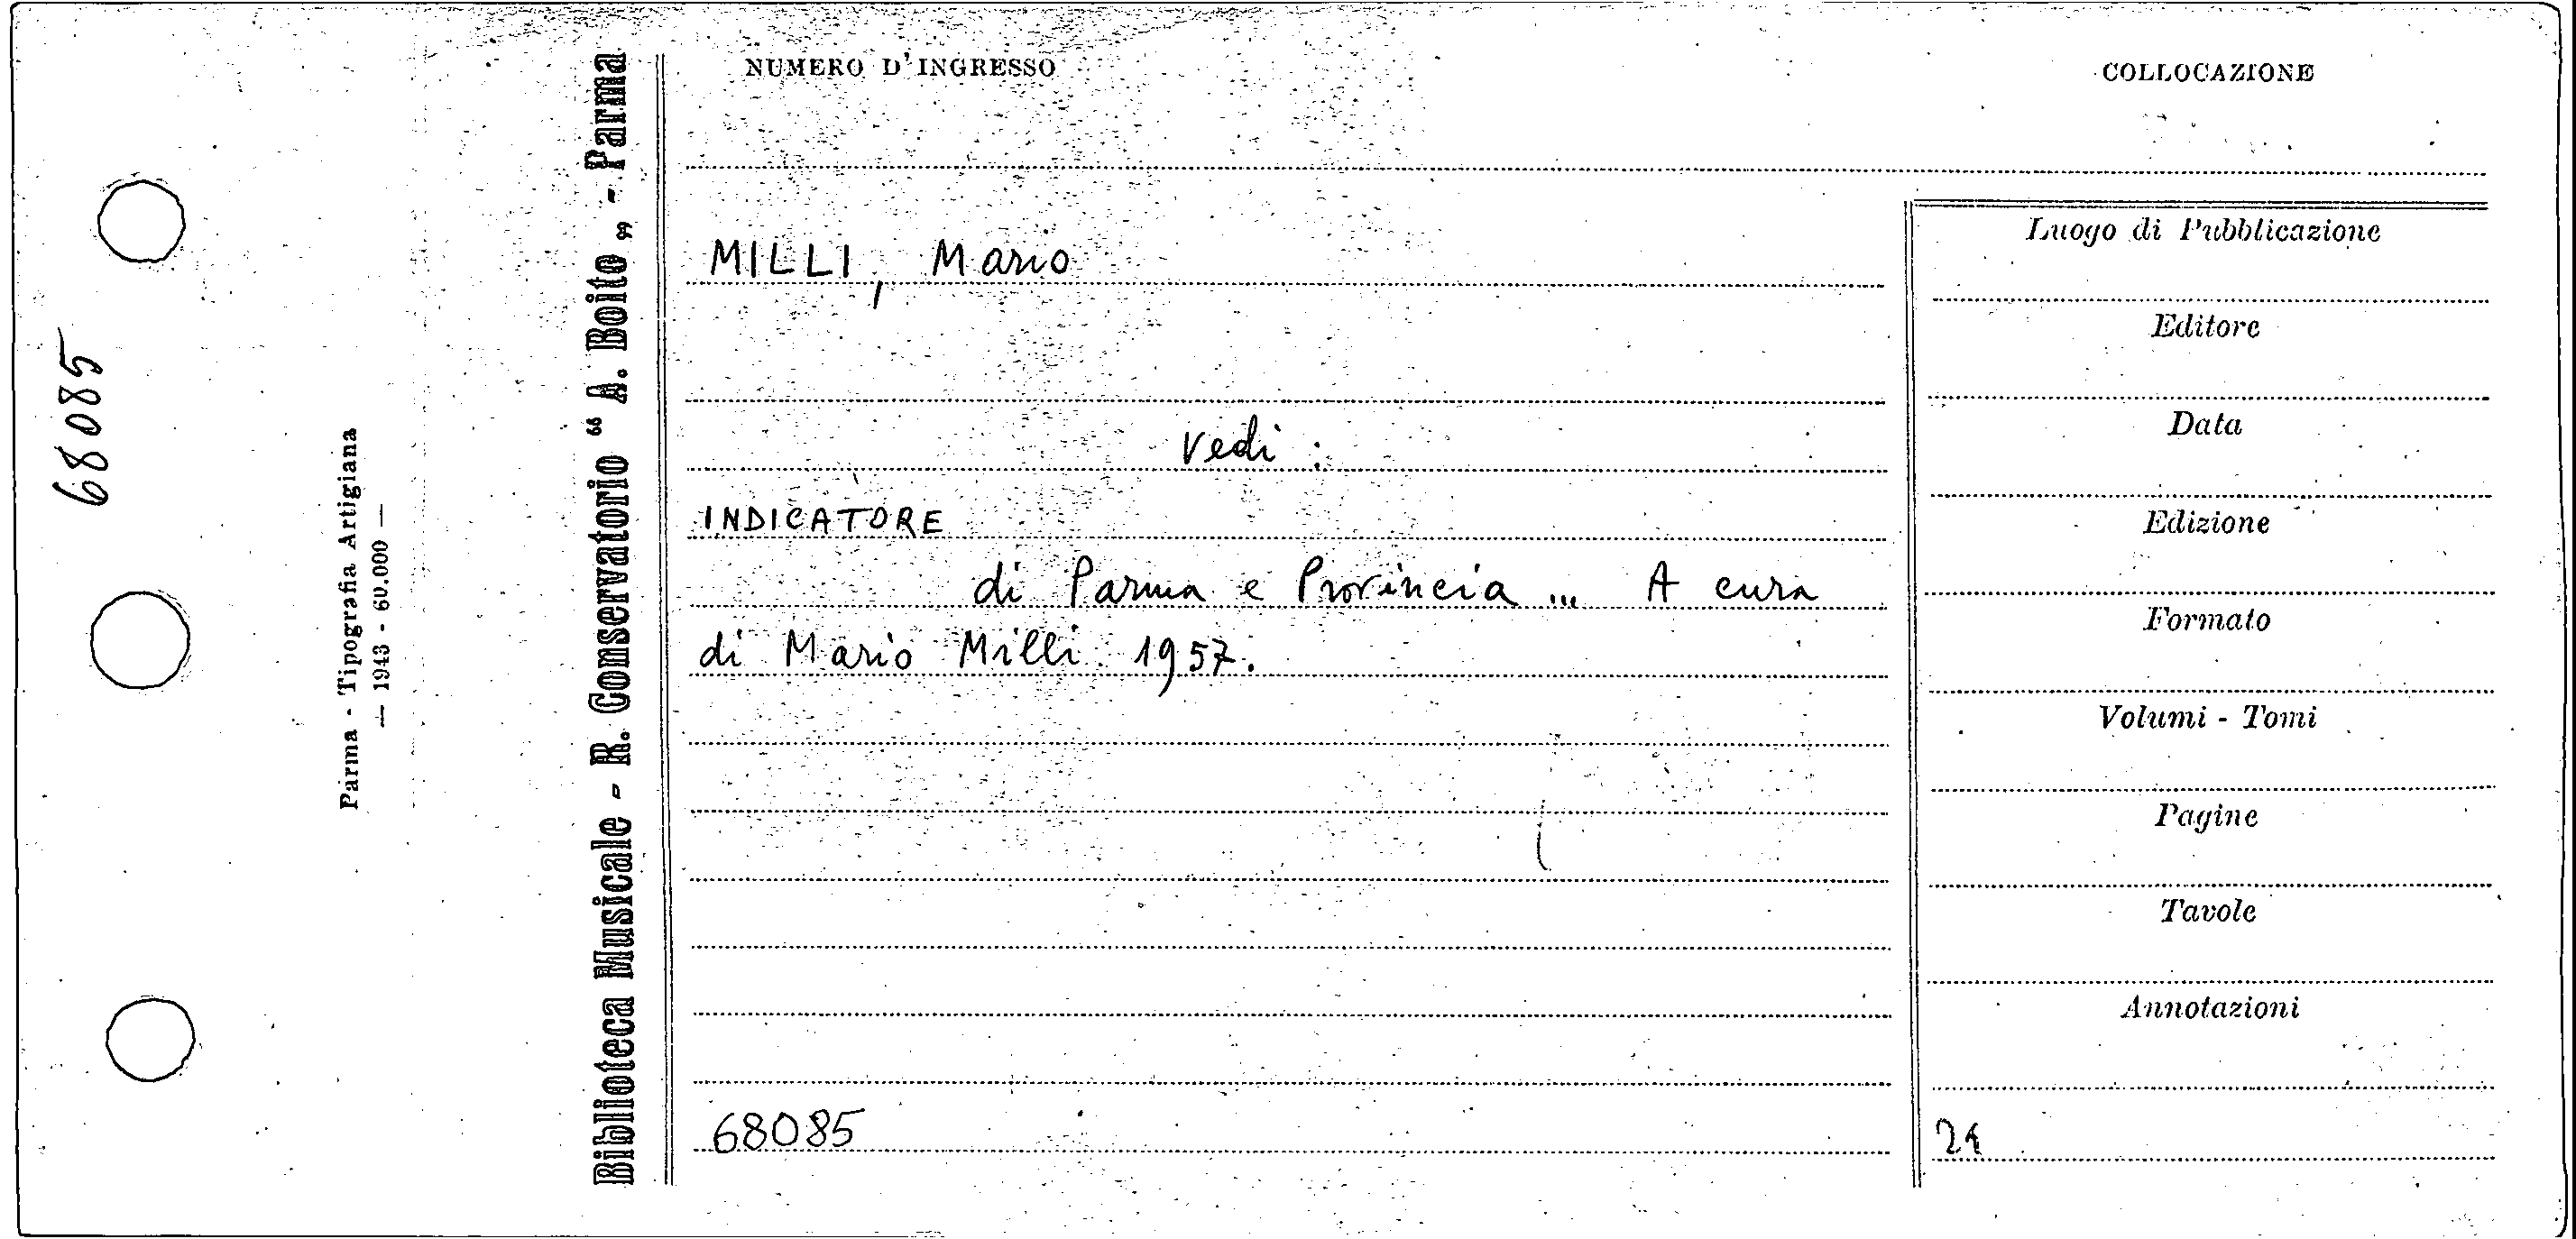 68085
Parma - Tipografia Artigiana
— 1943 - 60.000 —
Biblioteca Musicale - R. Conservatorio “ A. Boito „ - Parma
NUMERO D'INGRESSO
COLLOCAZIONE
MILLI, Mario
Vedi :
INDICATORE
di Parma e Provincia ... A cura
di Mario Milli 1957.
68085
Luogo di Pubblicazione
Editore
Data
Edizione
Formato
Volumi - Tomi
Pagine
Tavole
Annotazioni